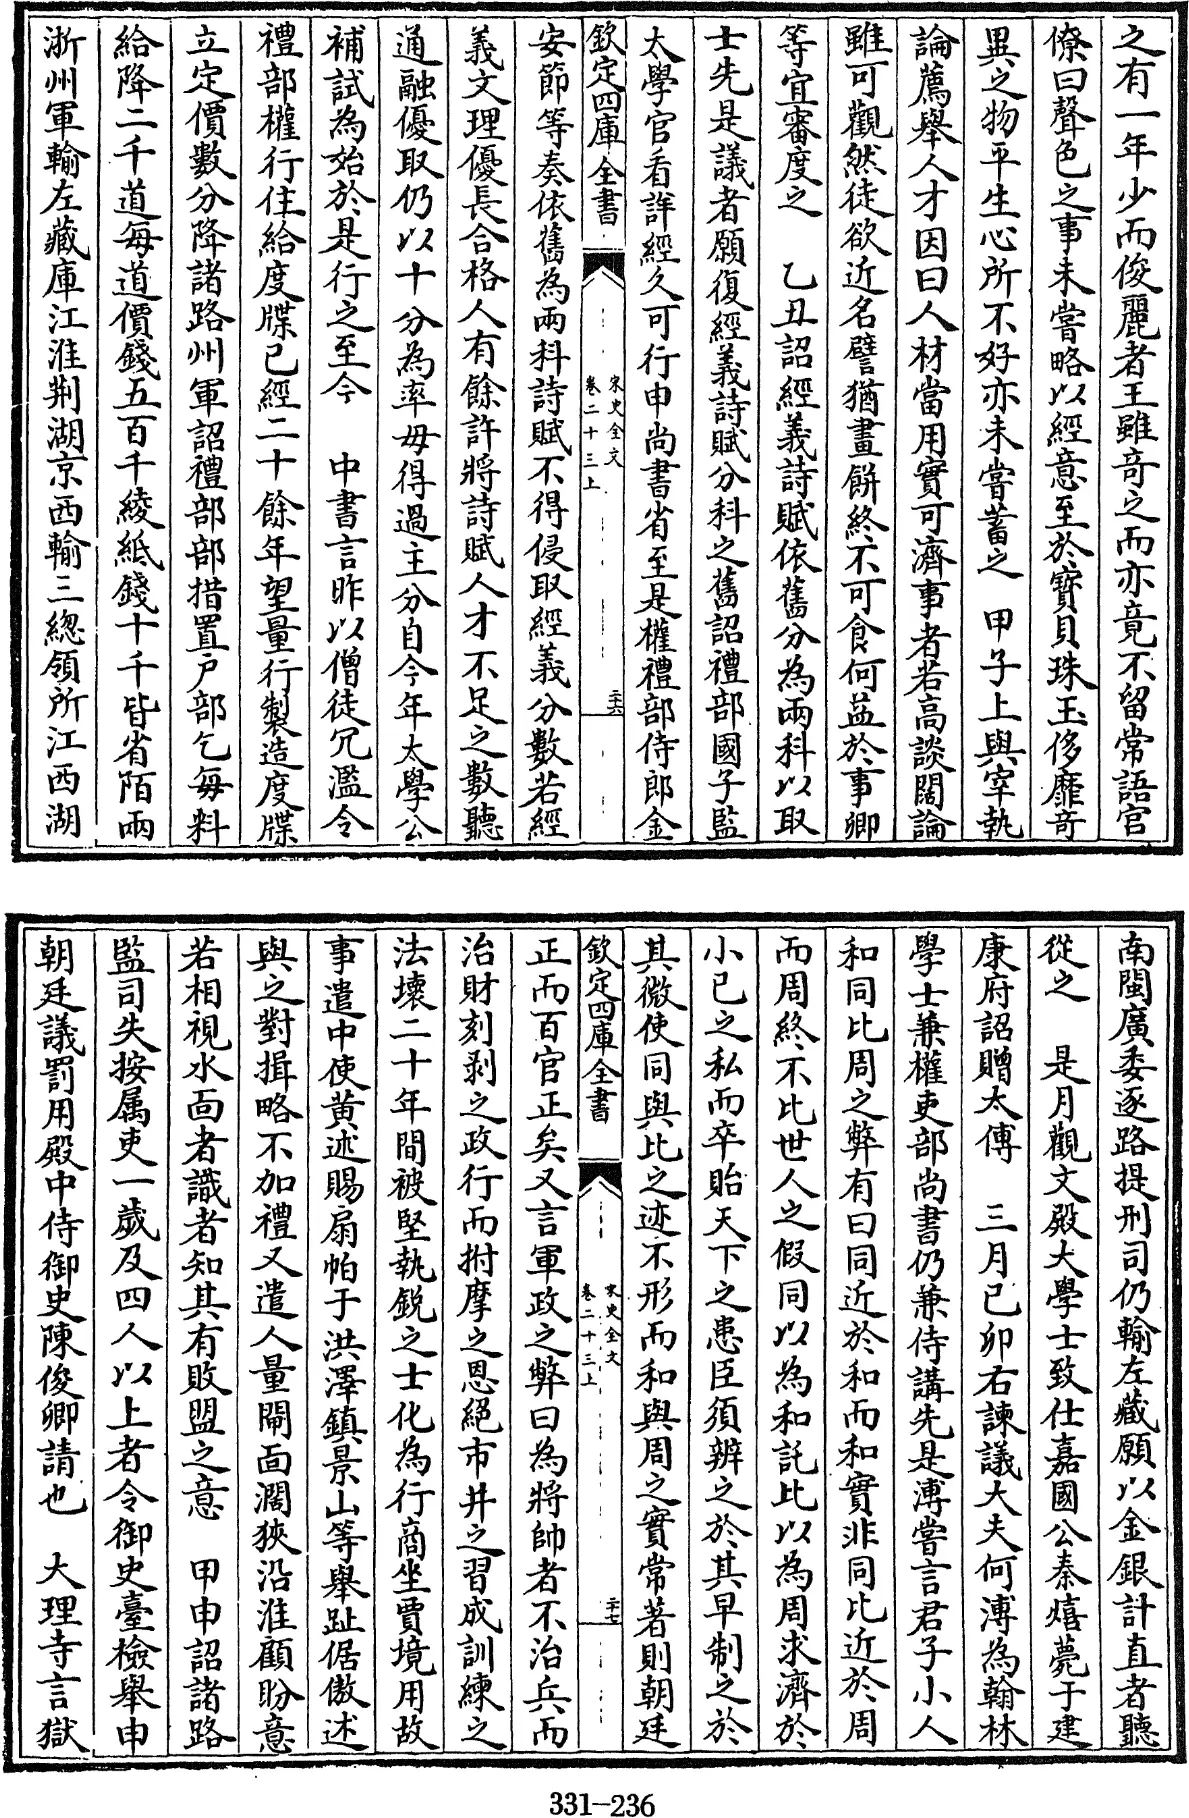 之有一年少而俊麗者王雖奇之而亦竟不留常語官
僚曰聲色之事未嘗略以經意至於寳貝珠玉侈靡竒
異之物平生心所不好亦未嘗蓄之　甲子上與宰執
論薦舉人才因曰人材當用實可濟事者若高談闊論
雖可觀然徒欲近名譬猶畫餅終不可食何益於事卿
等宜審度之　乙丑詔經義詩賦依舊分為兩科以取
士先是議者願復經義詩賦分科之舊詔禮部國子監
太學官看詳經久可行申尚書省至是權禮部侍郎金
欽定四庫全書
宋史全文
卷二十三上
二十六
安節等奏依舊為兩科詩賦不得侵取經義分數若經
義文理優長合格人有餘許將詩賦人才不足之數聽
通融優取仍以十分為率毋得過主分自今年太學公
補試為始於是行之至今　中書言昨以僧徒冗濫令
禮部權行住給度牒已經二十餘年望量行製造度牒
立定價數分降諸路州軍詔禮部部措置户部乞每料
給降二千道每道價錢五百千綾紙錢十千皆省陌兩
浙州軍輸左藏庫江淮荆湖京西輸三總領所江西湖
南閩廣委逐路提刑司仍輸左藏願以金銀計直者聽
從之　是月觀文殿大學士致仕嘉國公秦熺薨于建
康府詔贈太傅　三月己卯右諫議大夫何溥為翰林
學士兼權吏部尚書仍兼侍講先是溥嘗言君子小人
和同比周之弊有曰同近於和而和實非同比近於周
而周終不比世人之假同以為和託比以為周求濟於
小已之私而卒貽天下之患臣須辨之於其早制之於
其微使同與比之迹不形而和與周之實常著則朝廷
欽定四庫全書
宋史全文
卷二十三上
二十七
正而百官正矣又言軍政之弊曰為將帥者不治兵而
治財刻剥之政行而拊摩之恩絕市井之習成訓練之
法壞二十年間被堅執鋭之士化為行商坐賈境用故
事遣中使黄述賜扇帕于洪澤鎮景山等舉趾倨傲述
與之對揖略不加禮又遣人量閘面濶狹沿淮顧盼意
若相視水面者識者知其有敗盟之意　甲申詔諸路
監司失按属吏一歲及四人以上者令御史臺檢舉申
朝廷議罰用殿中侍御史陳俊卿請也　大理寺言獄
331-236